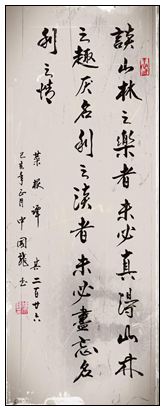 談山林之樂者未必真得山林
之趣厌名利之谈者未必盡忘名
利之情
菜根譚 其二百廿六
己亥年 月 中國龍书